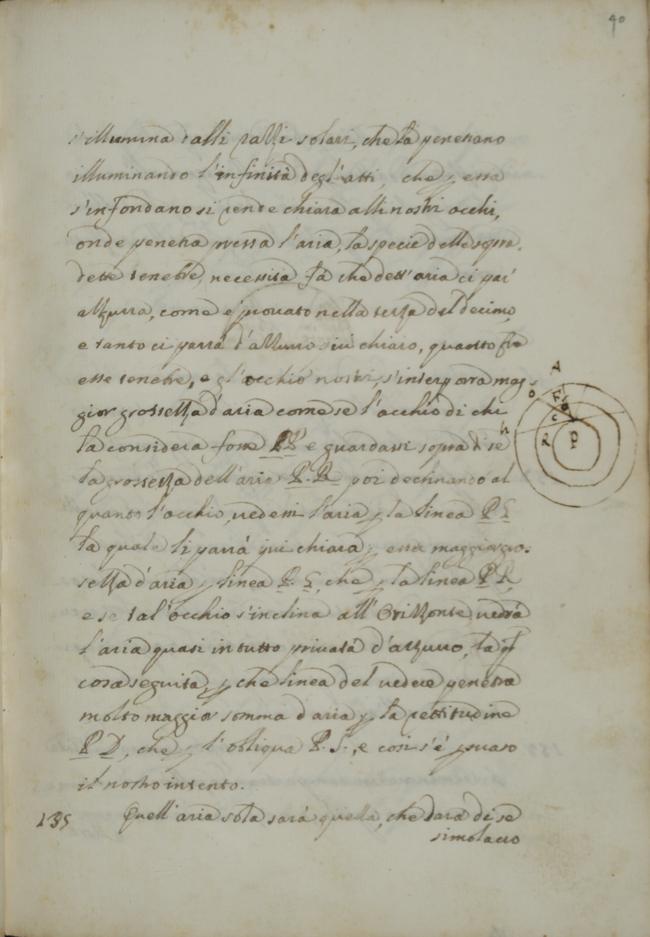 40
s'illumina dalli razzi solari, che la penetrano
illuminando l'infinità degl'atti, che p essa
s'infondano si rende chiara alli nostri occhi,
onde penetra messa l'aria, la specie delle sopra.
dette tenebre, necessità fà che dett'aria ci pai'
azzurra, come e' provato nella terza del decimo,
e tanto ci parrà d'azzurro più chiaro, quanto frà
esse tenebre, e gl'occhi nostri, s'interporrà mag-
gior grossezza d'aria come se l'occhio di chi
la considera fosse P. e guardassi sopra di se
la grossezza dell'aria P. R. poi declinando al
quanto l'occhio, vedessi l'aria p la linea P S
la quale li parrà più chiara p essa maggior gro.
sezza d'aria p linea P. S, che p la linea P R,
e se tal'occhio s'inclina all'Orizzonte, vedrà
l'aria quasi in tutto privata d'azzurro, la q̃l
cosa seguita, p che linea del vedere penetra
molto maggior somma d'aria p la rettitudine
P D, che p l'obliqua P. S., e così s'è p suaso
il nostro intento.
135 Quell'aria sola sarà quella, che darà di se
simolacro
A
o
c
n
R
P